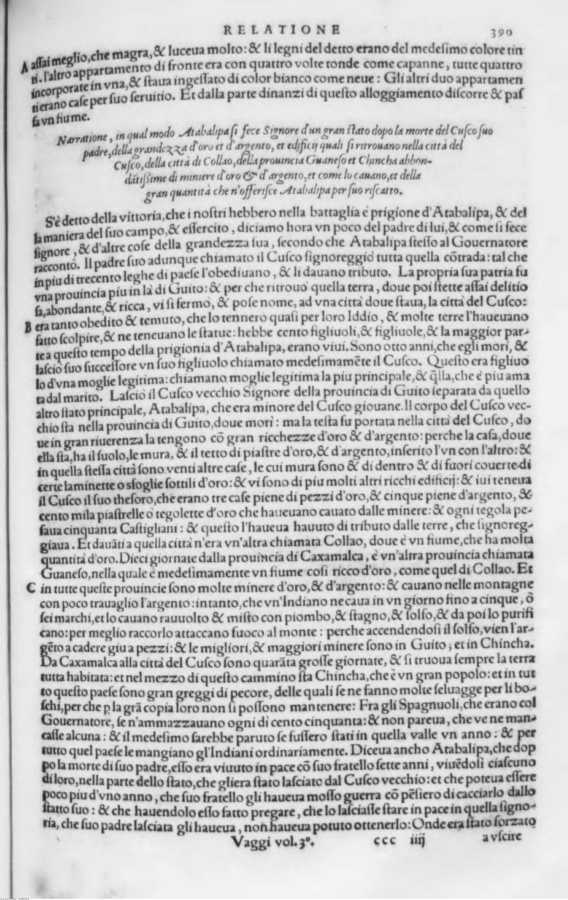 RELATIONE 390
A assai meglio, che magra, & luceua molto: & li legni del detto erano del medesimo colore tin
ti. l'altro appartamento di fronte era con quattro volte tonde come capanne, tutte quattro
incorporate in vna, & staua ingessato di color bianco come neue: Gli altri duo appartamen
ti erano case per suo seruitio. Et dalla parte dinanzi di questo alloggiamento discorre & pas
sa vn fiume.
Narratione, in qual modo Atabalipa si fece Signore d'un gran stato dopo la morte del Cusco suo
padre, della grandezza d'oro et d'argento, et edificij quali si ritrouano nella città del
Cusco, della città di Collao, della prouincia Guaneso et Chincha abbon-
dātissime di miniere d'oro & d'argento, et come lo cauano, et della
gran quantità che n'offerisce Atabalipa per suo riscatto.
S'è detto della vittoria, che i nostri hebbero nella battaglia è prigione d'Atabalipa, & del
la maniera del suo campo, & essercito, diciamo hora vn poco del padre di lui, & come si fece
signore, & d'altre cose della grandezza sua, secondo che Atabalipa stesso al Gouernatore
raccontò. Il padre suo adunque chiamato il Cusco signoreggiò tutta quella cōtrada: tal che
in piu di trecento leghe di paese l'obediuano, & li dauano tributo. La propria sua patria fu
vna prouincia piu in là di Guito: & per che ritrouò quella terra, doue poi stette assai delitio
sa, abondante, & ricca, vi si fermò, & pose nome, ad vna città doue staua, la città del Cusco:
B era tanto obedito & temuto, che lo tennero quasi per loro Iddio, & molte terre l'haueuano
fatto scolpire, & ne teneuano le statue: hebbe cento figliuoli, & figliuole, & la maggior par-
te a questo tempo della prigionia d'Atabalipa, erano viui. Sono otto anni, che egli morì, &
lasciò suo successore vn suo figliuolo chiamato medesimamēte il Cusco. Questo era figliuo
lo d'vna moglie legitima: chiamano moglie legitima la piu principale, & q̄lla, che è piu ama
ta dal marito. Lasciò il Cusco vecchio Signore della prouincia di Guito separata da quello
altro stato principale, Atabalipa, che era minore del Cusco giouane. Il corpo del Cusco vec-
chio sta nella prouincia di Guito, doue morì: ma la testa fu portata nella città del Cusco, do
ue in gran riuerenza la tengono cō gran ricchezze d'oro & d'argento: perche la casa, doue
ella sta, ha il suolo, le mura, & il tetto di piastre d'oro, & d'argento, inserito l'vn con l'altro: &
in quella stessa città sono venti altre case, le cui mura sono & di dentro & di fuori couerte di
certe laminette o sfoglie sottili d'oro: & vi sono di piu molti altri ricchi edificij: & iui teneua
il Cusco il suo thesoro, che erano tre case piene di pezzi d'oro, & cinque piene d'argento, &
cento mila piastrelle o tegolette d'oro che haueuano cauato dalle minere: & ogni tegola pe-
saua cinquanta Castigliani: & questo l'haueua hauuto di tributo dalle terre, che signoreg-
giaua. Et dauāti a quella città n'era vn'altra chiamata Collao, doue è vn fiume, che ha molta
quantità d'oro. Dieci giornate dalla prouincia di Caxamalca, è vn'altra prouincia chiamata
Guaneso, nella quale è medesimamente vn fiume cosi ricco d'oro, come quel di Collao. Et
C in tutte queste prouincie sono molte minere d'oro, & d'argento: & cauano nelle montagne
con poco trauaglio l'argento: intanto, che vn'Indiano ne caua in vn giorno fino a cinque, ò
sei marchi, et lo cauano rauuolto & misto con piombo, & stagno, & solfo, & da poi lo purifi
cano: per meglio raccorlo attaccano fuoco al monte: perche accendendosi il solfo, vien l'ar-
gēto a cadere giu a pezzi: & le migliori, & maggiori minere sono in Guito, et in Chincha.
Da Caxamalca alla città del Cusco sono quarāta grosse giornate, & si truoua sempre la terra
tutta habitata: et nel mezzo di questo cammino sta Chincha, che è vn gran popolo: et in tut
to questo paese sono gran greggi di pecore, delle quali se ne fanno molte seluagge per li bo-
schi, per che p la grā copia loro non si possono mantenere: Fra gli Spagnuoli, che erano col
Gouernatore, se n'ammazzauano ogni di cento cinquanta: & non pareua, che ve ne man-
casse alcuna: & il medesimo sarebbe paruto se fussero stati in quella valle vn anno: & per
tutto quel paese le mangiano gl'Indiani ordinariamente. Diceua ancho Atabalipa, che dop
po la morte di suo padre, esso era viuuto in pace cō suo fratello sette anni, viuēdosi ciascuno
di loro, nella parte dello stato, che gliera stato lasciato dal Cusco vecchio: et che poteua essere
poco piu d'vno anno, che suo fratello gli haueua mosso guerra cō pēsiero di cacciarlo dallo
stato suo: & che hauendolo esso fatto pregare, che lo lasciasse stare in pace in quella signo-
ria, che suo padre lasciata gli haueua, non haueua potuto ottenerlo: Onde era stato sforzato
Vaggi vol. 3°. ccc iiij a vscire